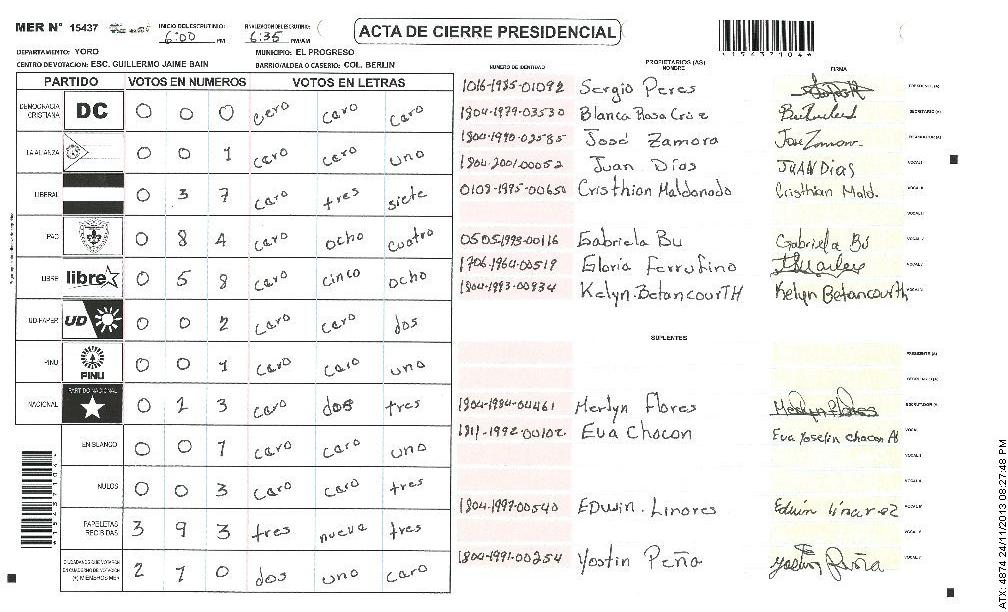 MER N° 15437
INICIO DEL ESCRUTINIO: 6:00 PM
FINALIZACION DEL ESCRUTINIO: 6:35 PM/AM
ACTA DE CIERRE PRESIDENCIAL
DEPARTAMENTO: YORO
MUNICIPIO: EL PROGRESO
CENTRO DE VOTACION: ESC. GUILLERMO JAIME BAIN
BARRIO/ALDEA O CASERIO: COL. BERLIN
PARTIDO VOTOS EN NUMEROS VOTOS EN LETRAS
DEMOCRACIA CRISTIANA DC 0 0 0 cero caro caro
LA ALIANZA 0 0 1 caro cero uno
LIBERAL 0 3 7 caro tres siete
PAC 0 8 4 caro ocho cuatro
LIBRE libre 0 5 8 caro cinco ocho
UD-FAPER UD 0 0 2 caro caro dos
PINU PINU 0 0 1 caro caro uno
NACIONAL PARTIDO NACIONAL 0 2 3 caro dos tres
EN BLANCO 0 0 1 caro caro uno
NULOS 0 0 3 caro caro tres
PAPELETAS RECIBIDAS 3 9 3 tres nueve tres
CIUDADANOS QUE VOTARON EN CUADERNO DE VOTACION (+) MIEMBROS MER 2 1 0 dos uno caro
NUMERO DE IDENTIDAD PROPIETARIOS (AS) NOMBRE FIRMA
1016-1985-01092 Sergio Peres PRESIDENTE (A)
1804-1979-03530 Blanca Rosa Cruz SECRETARIO (A)
1804-1990-02585 José Zamora Jose Zamora ESCRUTADOR (A)
1804-2001-00052 Juan Días JUAN DIAS VOCAL I
0109-1995-00650 Cristhian Maldonado Cristhian Mald. VOCAL II
VOCAL III
0505-1993-00116 Gabriela Bu Gabriela Bú
1706-1964-00519 Gloria Ferrufino
1804-1993-00934 Kelyn BetancourTH Kelyn Betancourth
SUPLENTES
PRESIDENTE (A)
SECRETARIO (A)
1804-1984-04461 Merlyn Flores Merlyn Flores ESCRUTADOR (A)
1811-1992-00102 Eva Chocon Eva Yoselin chacon VOCAL I
1804-1997-00540 EDwin Linores Edwin linarez
1804-1991-00254 Yostin Peña Yostin Peña
ATX: 4874 24/11/2013 08:27:48 PM